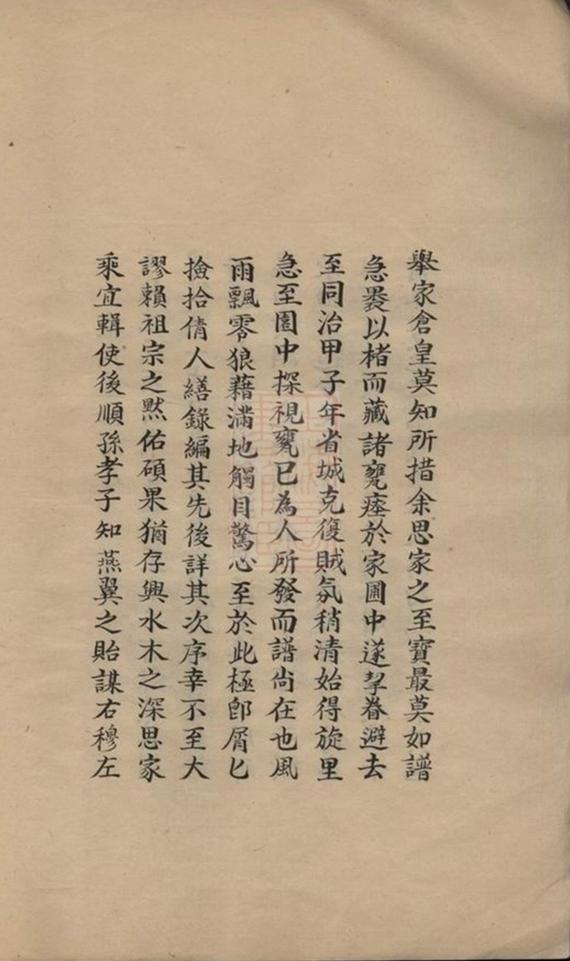 舉家倉皇莫知所措余思家之至寶最莫如譜
急裝以楮而藏諸甕瘞於家圃中遂挈眷避去
至同治甲子年省城克復賊氛稍清始得旋里
急至園中探視甕已為人所發而譜尚在也風
雨飄零狼藉滿地觸目驚心至於此極即屑匕
撿拾倩人繕錄編其先後詳其次序幸不至大
謬賴祖宗之默佑碩果猶存興水木之深思家
乘宜輯使後順孫孝子知燕翼之貽謀右穆左